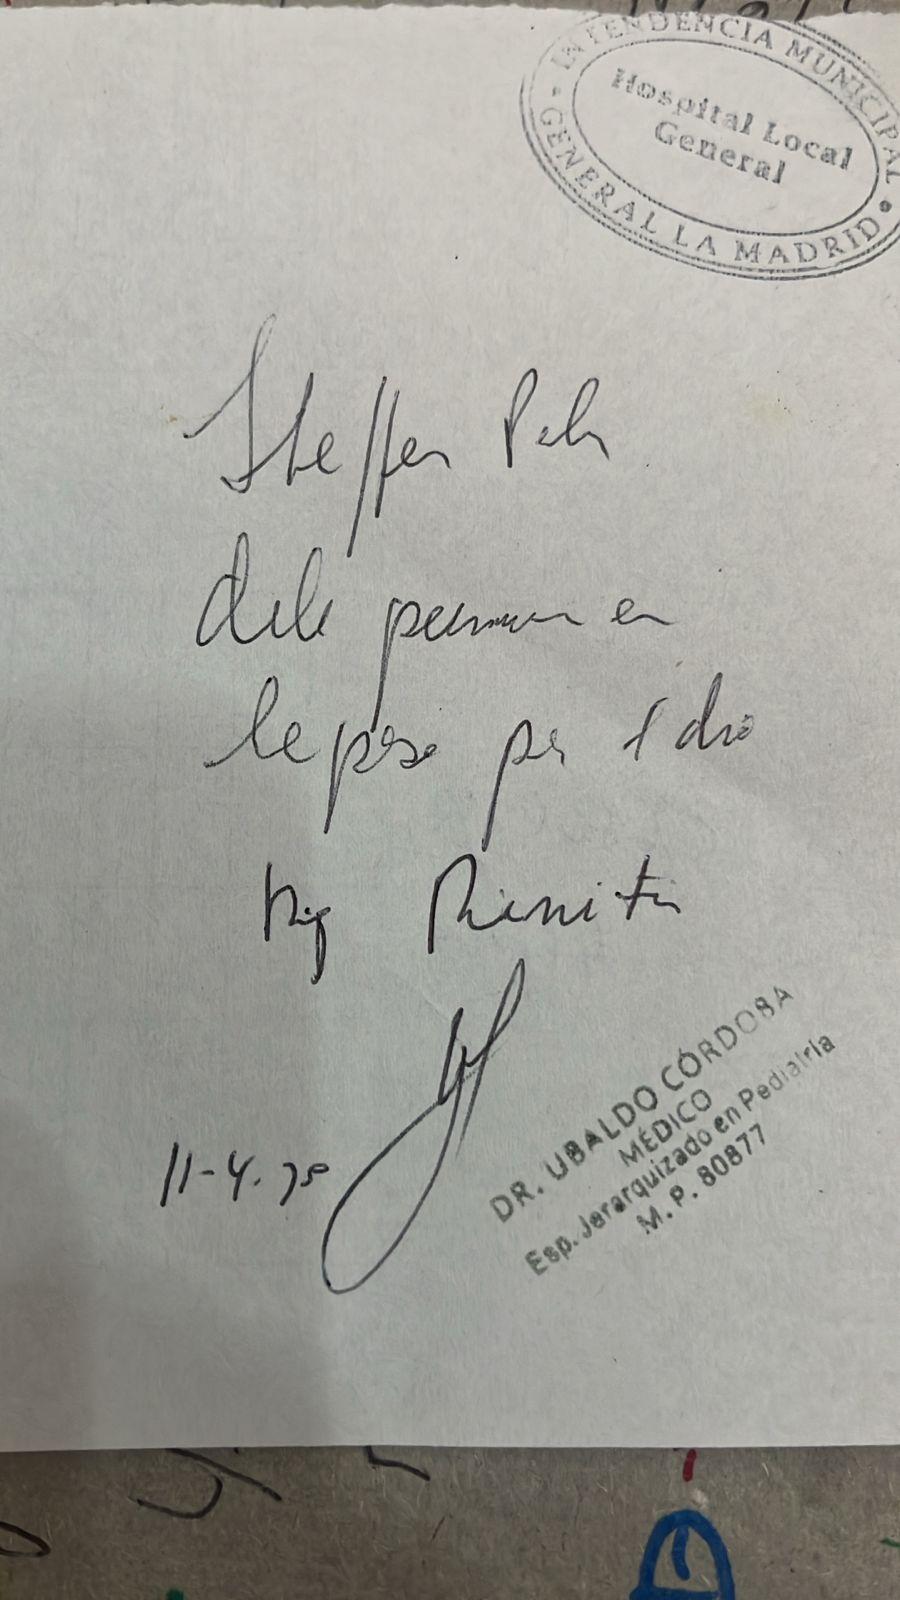 INTENDENCIA MUNICIPAL
Hospital Local
General
GENERAL LA MADRID
Steffen
debe permanecer en
reposo por 1 dia
Diag Rinitis
11-4-25
DR. UBALDO CÓRDOBA
MÉDICO
Esp. Jerarquizado en Pediatría
M. P. 80877